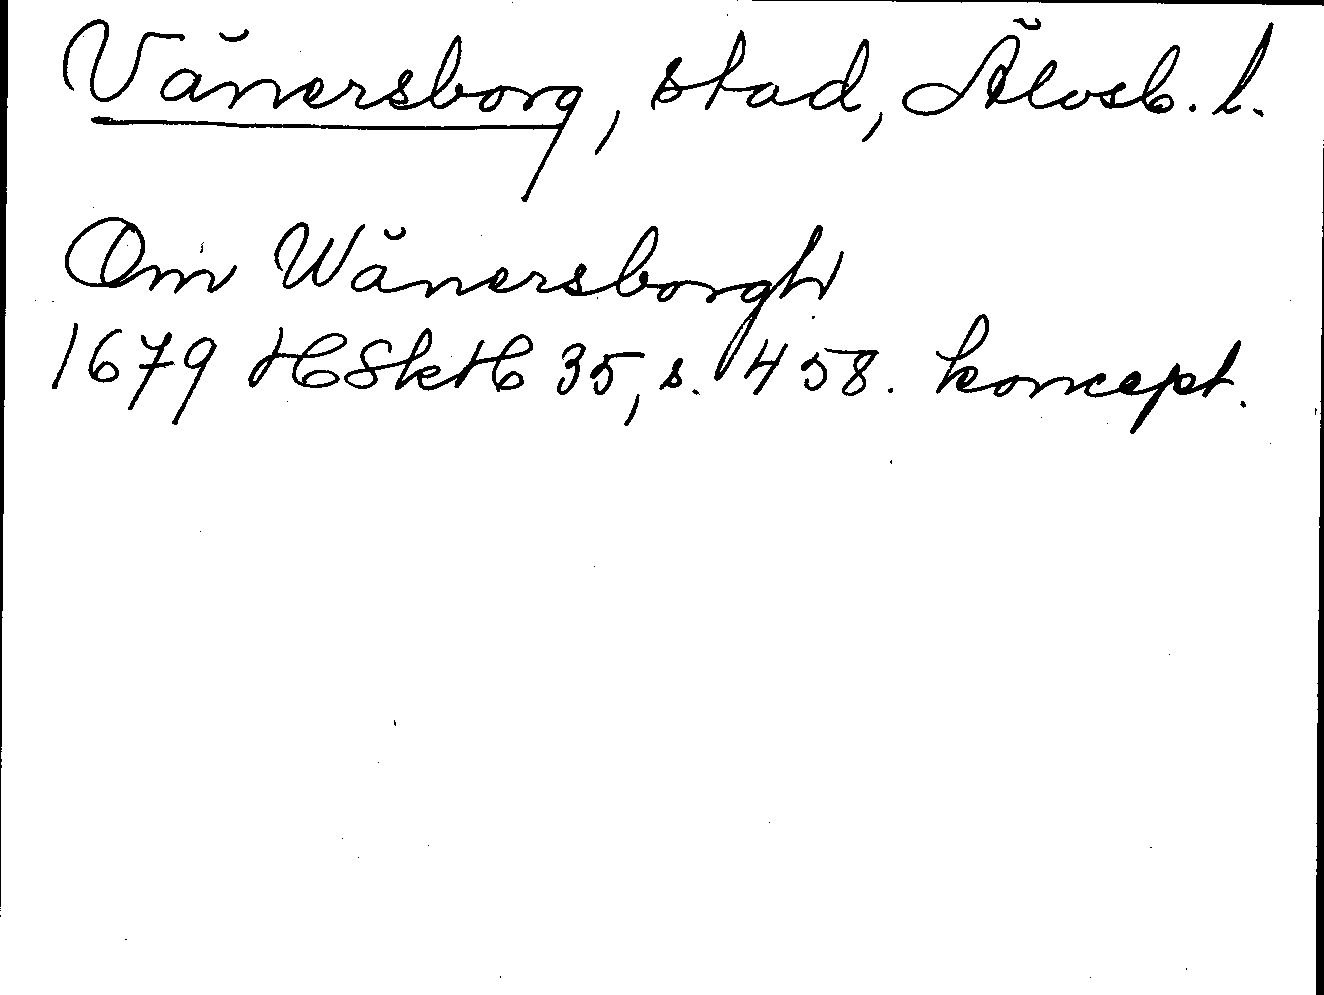 Vänersborg, stad, Älvsb. l.
Om Wänersborgh
1679 HSkH 35, s. 458. koncept.